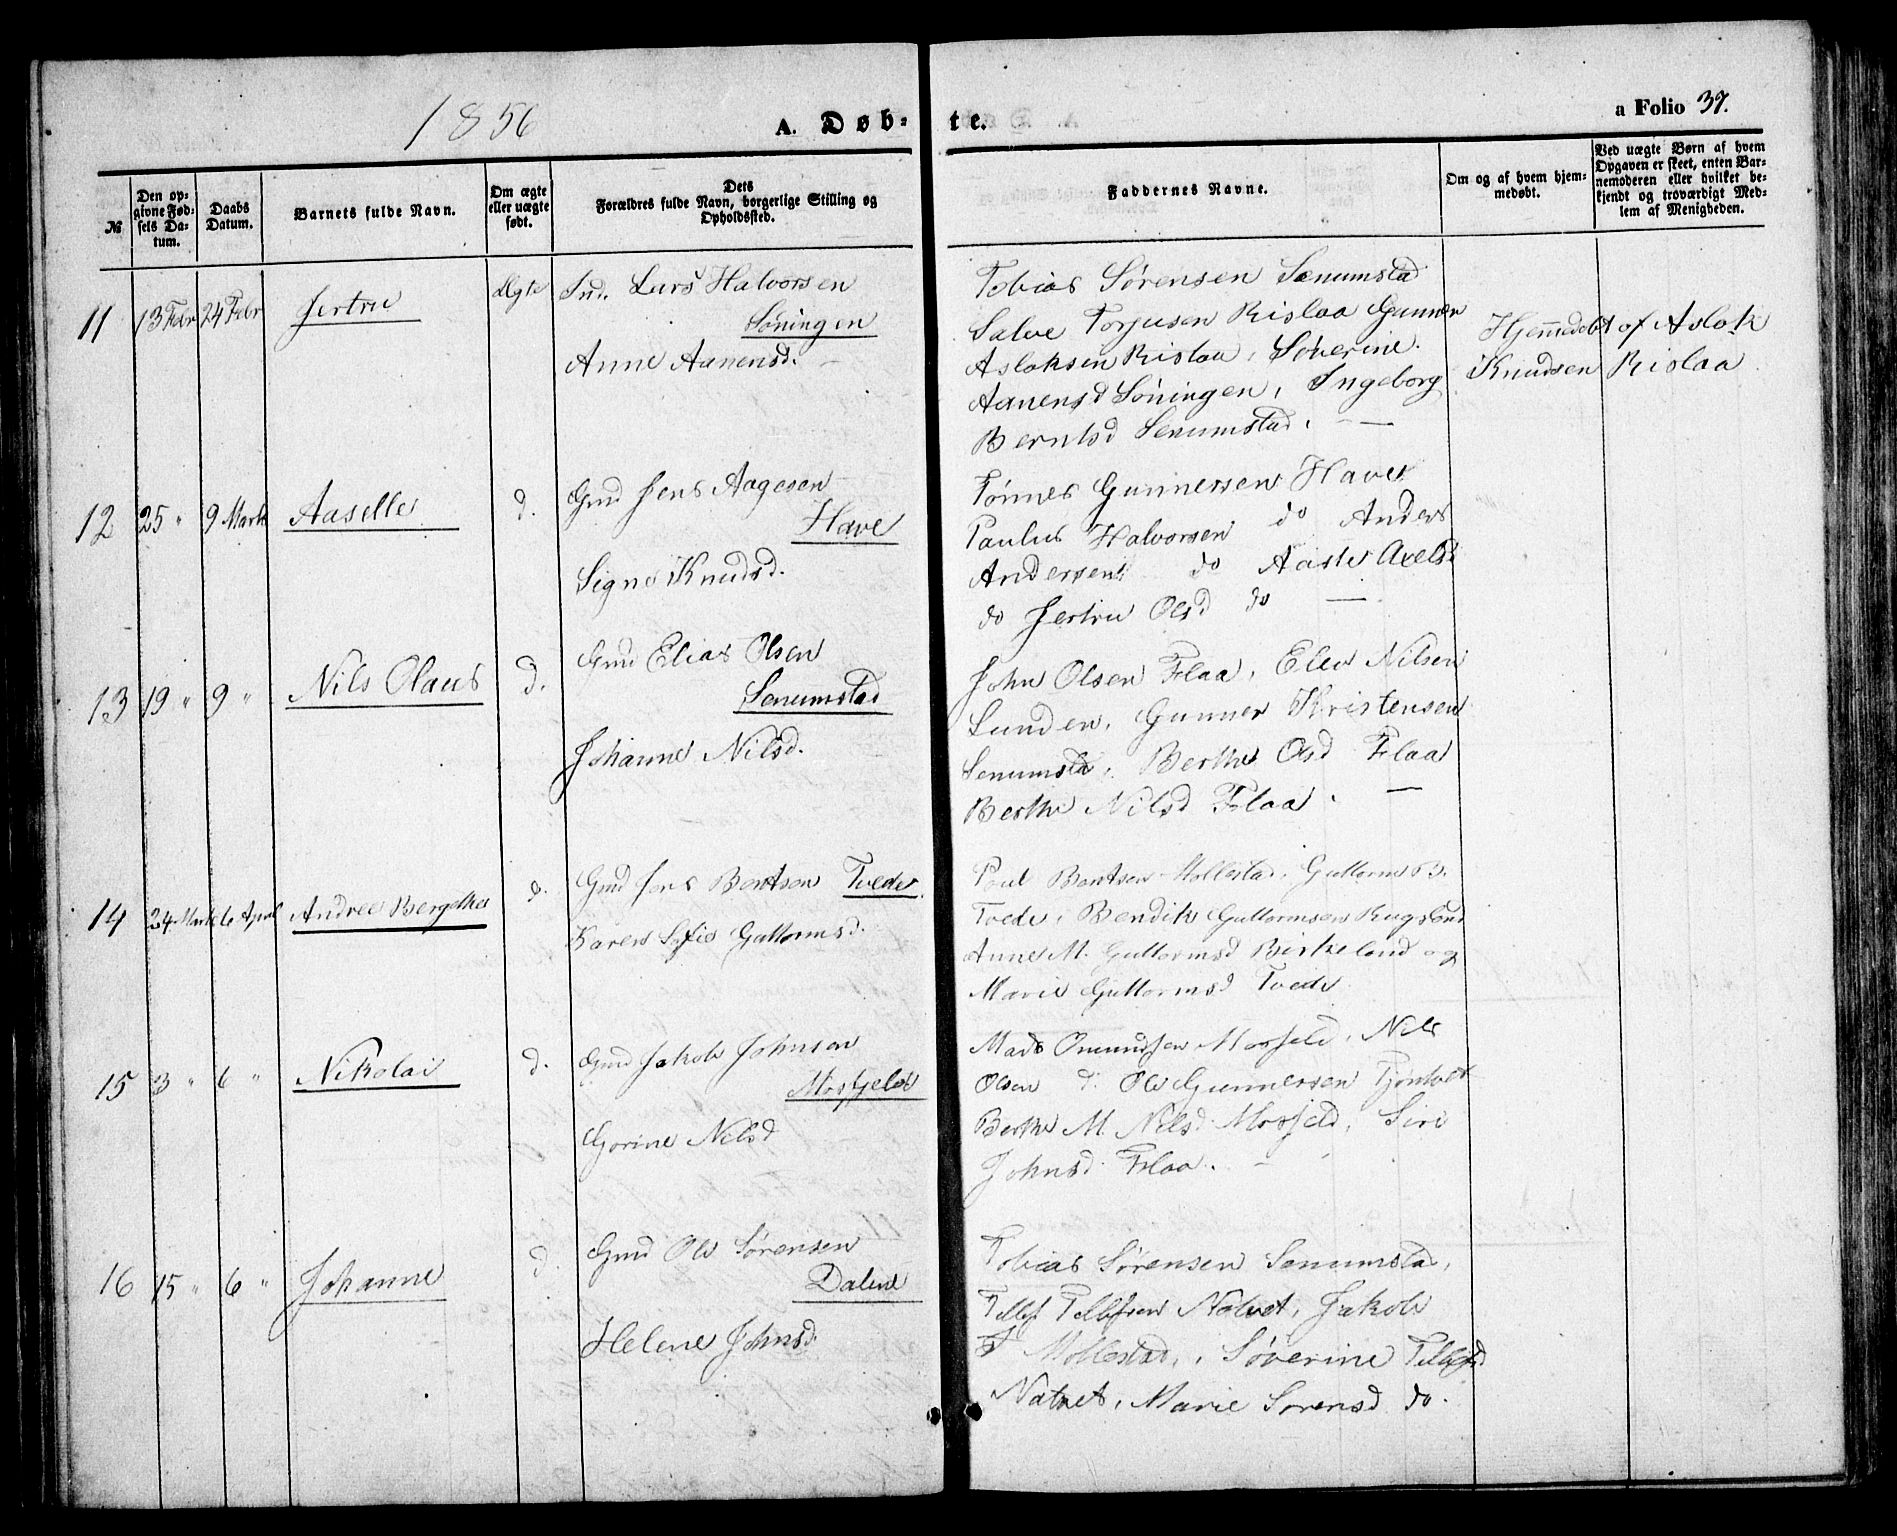 1856
A. Døb-
te.
a Folio 37.
№
Den op-
givne Fød-
sels Da-
tum.
Daabs
Datum.
Barnets fulde Navn.
Om ægte
eller uægte
født.
Dets
Forældres fulde Navn, borgerlige Stilling og
Opholdssted.
Faddernes Navne.
Om og af hvem hjem-
medøbt.
Ved uægte Børn af hvem
Opgaven er skeet, enten Bar-
nemoderen eller hvilket be-
kjendt og troværdigt Med-
lem af Menigheden.
11 13 Febr 24 Febr Jertru Ægte
Ind. Lars Halvorsen
Søningen
Anne Aanensd. —
Tobias Sørensen Senumstad
Salve Torjusen Rislaa Gunner
Aslaksen Rislaa, Søverine
Aanensd Søningen, Ingeborg
Berntsd Senumstad. —
Hjemmedøbt af Aslak
Knudsen Rislaa
12 25 " 9 Marts Aaselle d.
Gmd Jens Aagesen
Have
Signe Knudsd.
Tønnes Gunnersen Have
Paulus Halvorsen do Anders
Andersen do Aaste Axelsd
do Jertru Olsd do —
13 19 " 9 " Nils Olaus d.
Gmd Elias Olsen
Senumstad
Johanne Nilsd.
John Olsen Flaa, Elev Nilsen
Lunden, Gunner Kristensen
Senumsta, Berthe Olsd Flaa
Berthe Nilsd Flaa. —
14 24 Marts 6 April Andrea Bergethe d.
Gmd Jens Bentsen Tvede
Karen Sofie Guttormsd.
Poul Bentsen Mollestad, Guttorm B.
Tvede, Bendik Guttormsen Rugsland
Anne M. Guttormsd Birkeland og
Marie Guttormsd Tvede
15 3 " 6 " Nikolai d.
Gmd Jakob Johnsen
Mosfjeld
Gorine Nilsd
Mads Omundsen Mosfjeld, Nils
Olsen d. Ole Gunnersen Tjøntvet
Berthe M. Nilsd Mosfjeld, Siri
Johnsd. Flaa. —
16 15 " 6 " Johanne d.
Gmd Ole Sørensen
Dalene
Helene Johnsd.
Tobias Sørensen Senumstad,
Tellef Tellefsen Natvet, Jakob
T Mollestad, Søverine Tellefsd
Natvet, Marie Sorensd do.